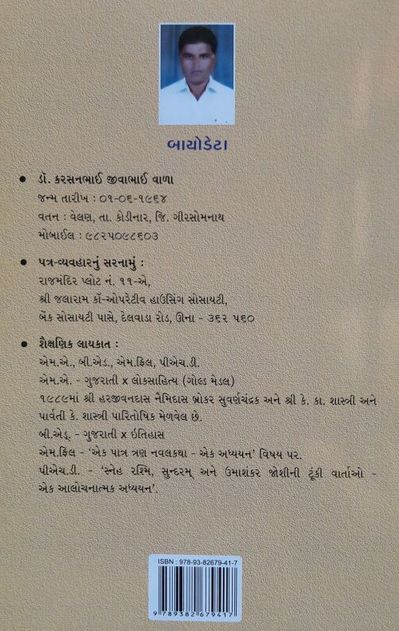 બાયોડેટા
• ડૉ. કરસનભાઈ જીવાભાઈ વાળા
જન્મ તારીખ : ૦૧-૦૬-૧૯૬૪
વતન : વેલણ, તા. કોડીનાર, જિ. ગીરસોમનાથ
મોબાઈલ : ૯૮૨૫૦૯૮૬૦૩
• પત્ર-વ્યવહારનું સરનામું :
રાજમંદિર પ્લોટ નં. ૧૧-એ,
શ્રી જલારામ કૉ-ઓપરેટીવ હાઉસિંગ સોસાયટી,
બેંક સોસાયટી પાસે, દેલવાડા રોડ, ઊના - ૩૬૨ ૫૬૦
• શૈક્ષણિક લાયકાત :
એમ.એ., બી.એડ., એમ.ફિલ, પીએચ.ડી.
એમ.એ. - ગુજરાતી x લોકસાહિત્ય (ગોલ્ડ મેડલ)
૧૯૮૯માં શ્રી હરજીવનદાસ નૈમિદાસ બ્રોકર સુવર્ણચંદ્રક અને શ્રી કે. કા. શાસ્ત્રી અને
પાર્વતી કે. શાસ્ત્રી પારિતોષિક મેળવેલ છે.
બી.એડ્. - ગુજરાતી x ઇતિહાસ
એમ.ફિલ - ‘એક પાત્ર ત્રણ નવલકથા - એક અધ્યયન’ વિષય પર.
પીએચ.ડી. - ‘સ્નેહ રશ્મિ, સુન્દરમ્ અને ઉમાશંકર જોશીની ટૂંકી વાર્તાઓ -
એક આલોચનાત્મક અધ્યયન’.
ISBN : 978-93-82679-41-7
9 789382 679417